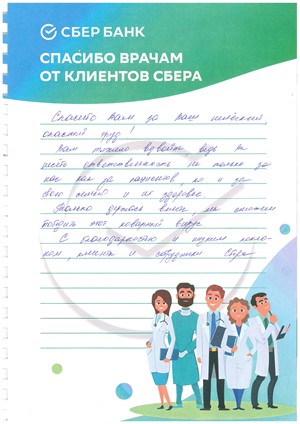 СБЕР БАНК
СПАСИБО ВРАЧАМ
ОТ КЛИЕНТОВ СБЕРА
Спасибо Вам за Ваш
опасный труд!
Вам тяжело вдвойне, ведь Вы
ответственность не только за
нас как за пациентов, но и за
свою семью и их здоровье.
Только держась вместе, мы сможем
победить этот коварный вирус.
С благодарностью и
клиенты и сотрудники Сбера